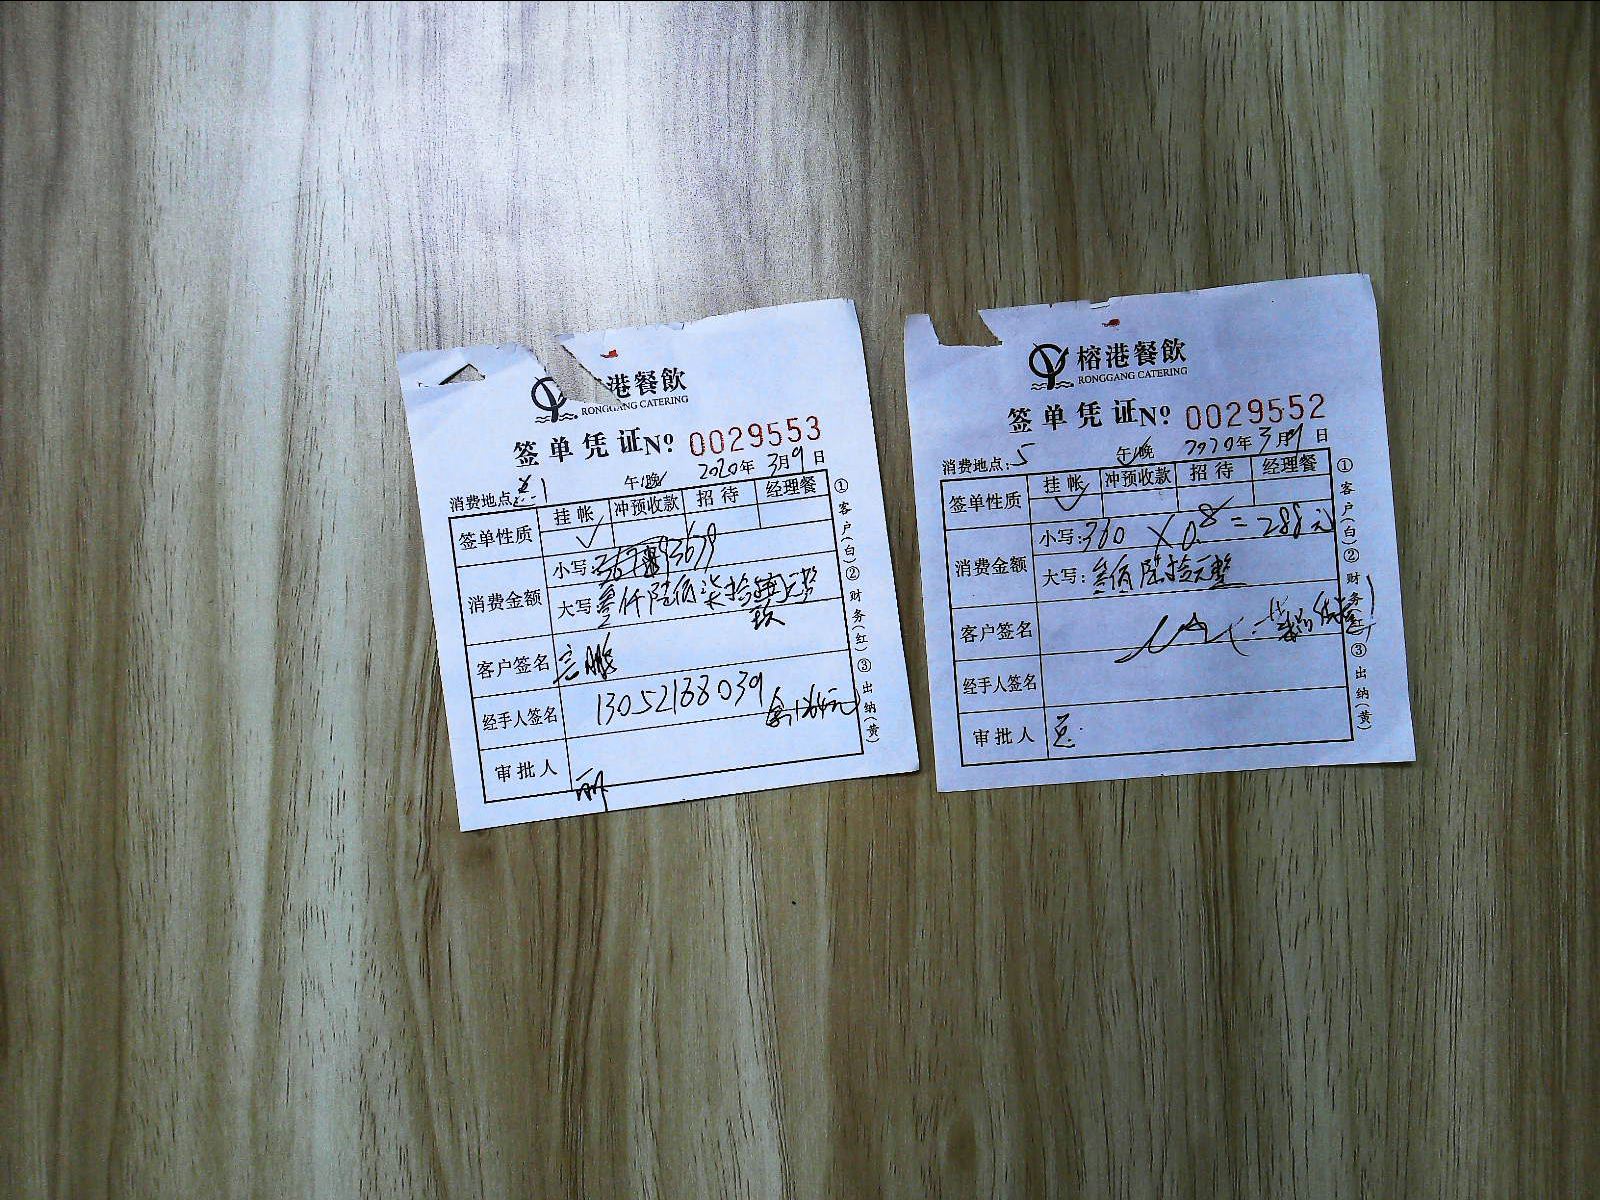 港餐飲
RONGGANG CATERING
签单凭证№ 0029553
午/晚 2020年3月9日
消费地点:
签单性质 挂帐 冲预收款 招待 经理餐
✓
消费金额
小写: 3679
大写 叁仟陆佰柒拾 元整
玖
客户签名
13052168039
经手人签名
审批人
①客户(白)②财务(红)③出纳(黄)
榕港餐飲
RONGGANG CATERING
签单凭证№ 0029552
午/晚 2020年3月9日
消费地点: 5
签单性质 挂帐 冲预收款 招待 经理餐
✓
消费金额
小写: 360 × 0.8 = 288元
大写: 叁佰陆拾元整
客户签名
经手人签名
审批人
①客户(白)②财务(红)③出纳(黄)